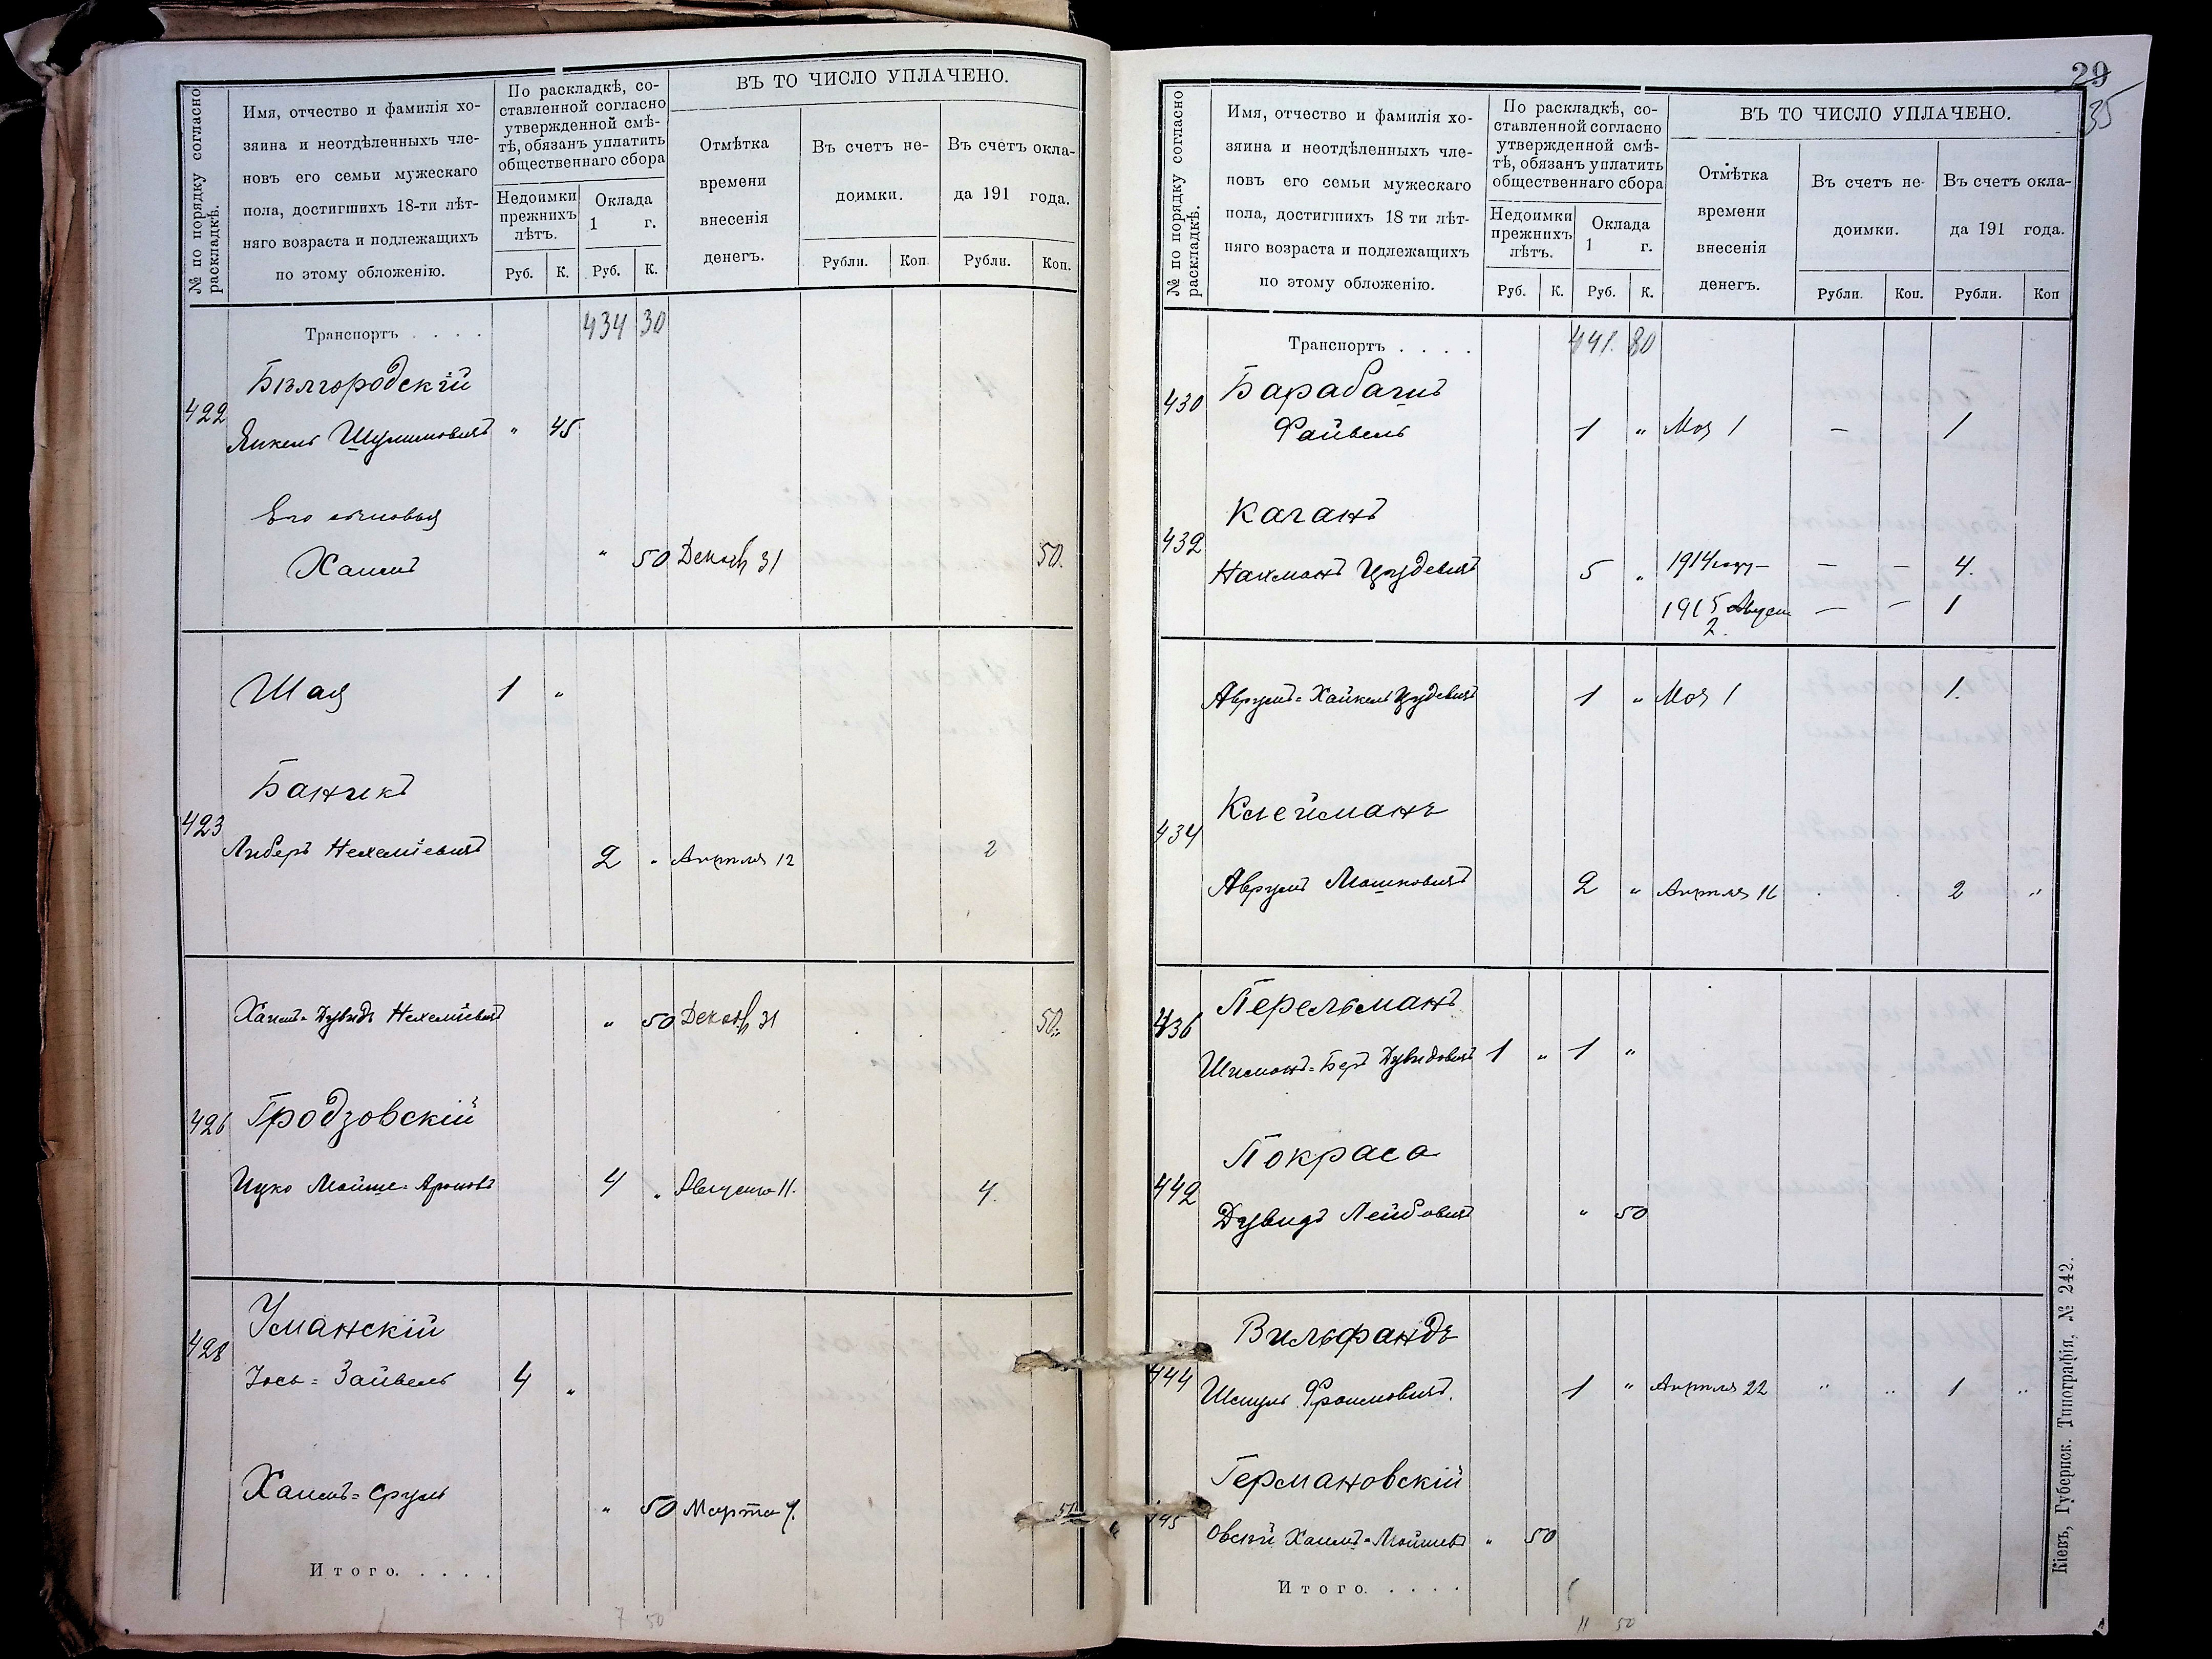 № по порядку согласно раскладкѣ.
Имя, отчество и фамилія хо-
зяина и неотдѣленныхъ чле-
новъ его семьи мужескаго
пола, достигшихъ 18-ти лѣт-
няго возраста и подлежащихъ
по этому обложенію.
По раскладкѣ, со-
ставленной согласно
утвержденной смѣ-
тѣ, обязанъ уплатить
общественнаго сбора
Недоимки прежнихъ лѣтъ.
Оклада 1 г.
Руб. К. Руб. К.
ВЪ ТО ЧИСЛО УПЛАЧЕНО.
Отмѣтка времени внесенія денегъ.
Въ счетъ не-
доимки.
Въ счетъ окла-
да 191 года.
Рубли. Коп. Рубли. Коп.
Транспортъ . . . . 434 30
Бѣлгородскій
422 Янкель Шулимовичъ " 45
Его сыновья
Хаимъ " 50 Декаб 31 50.
Шая 1 "
Банчикъ
423 Либеръ Нехеміевичъ 2 " Апрѣля 12 2
Хаимъ-Дувидъ Нехеміевичъ " 50 Декаб 31 50
426 Гродзовскій
Ицко Мойше-Ароновъ 4 " Августа 11. 4.
Уманскій
428 Іось-Зайвель 4 "
Хаимъ-Сруль " 50 Марта 7.
Итого. . . . .
7 50
29
35
№ по порядку согласно раскладкѣ.
Имя, отчество и фамилія хо-
зяина и неотдѣленныхъ чле-
новъ его семьи мужескаго
пола, достигшихъ 18 ти лѣт-
няго возраста и подлежащихъ
по этому обложенію.
По раскладкѣ, со-
ставленной согласно
утвержденной смѣ-
тѣ, обязанъ уплатить
общественнаго сбора
Недоимки прежнихъ лѣтъ.
Оклада 1 г.
Руб. К. Руб. К.
ВЪ ТО ЧИСЛО УПЛАЧЕНО.
Отмѣтка времени внесенія денегъ.
Въ счетъ не-
доимки.
Въ счетъ окла-
да 191 года.
Рубли. Коп. Рубли. Коп
Транспортъ . . . . 441. 80
430 Барабашъ
Файвель 1 " Мая 1 — 1
Каганъ
432 Нахманъ Іудевичъ 5 " 1914 году — — — 4.
1915 Август 2. — — 1
Аврумъ-Хайкель Іудевичъ 1 " Мая 1 1.
Клейманъ
434 Аврумъ Мошковичъ 2 " Апрѣля 16 2 "
Перельманъ
436 Шимонъ-Беръ Дувидовичъ 1 " 1 "
Покраса
442 Дувидъ Лейбовичъ " 50
Вильфандъ
444 Шмуль Фроимовичъ. 1 " Апрѣля 22 " " 1 "
Германовскій
445 овскій Хаимъ-Мойшев " 50
Итого. . . . .
11 50
Кіевъ, Губернск. Типографія, № 242.